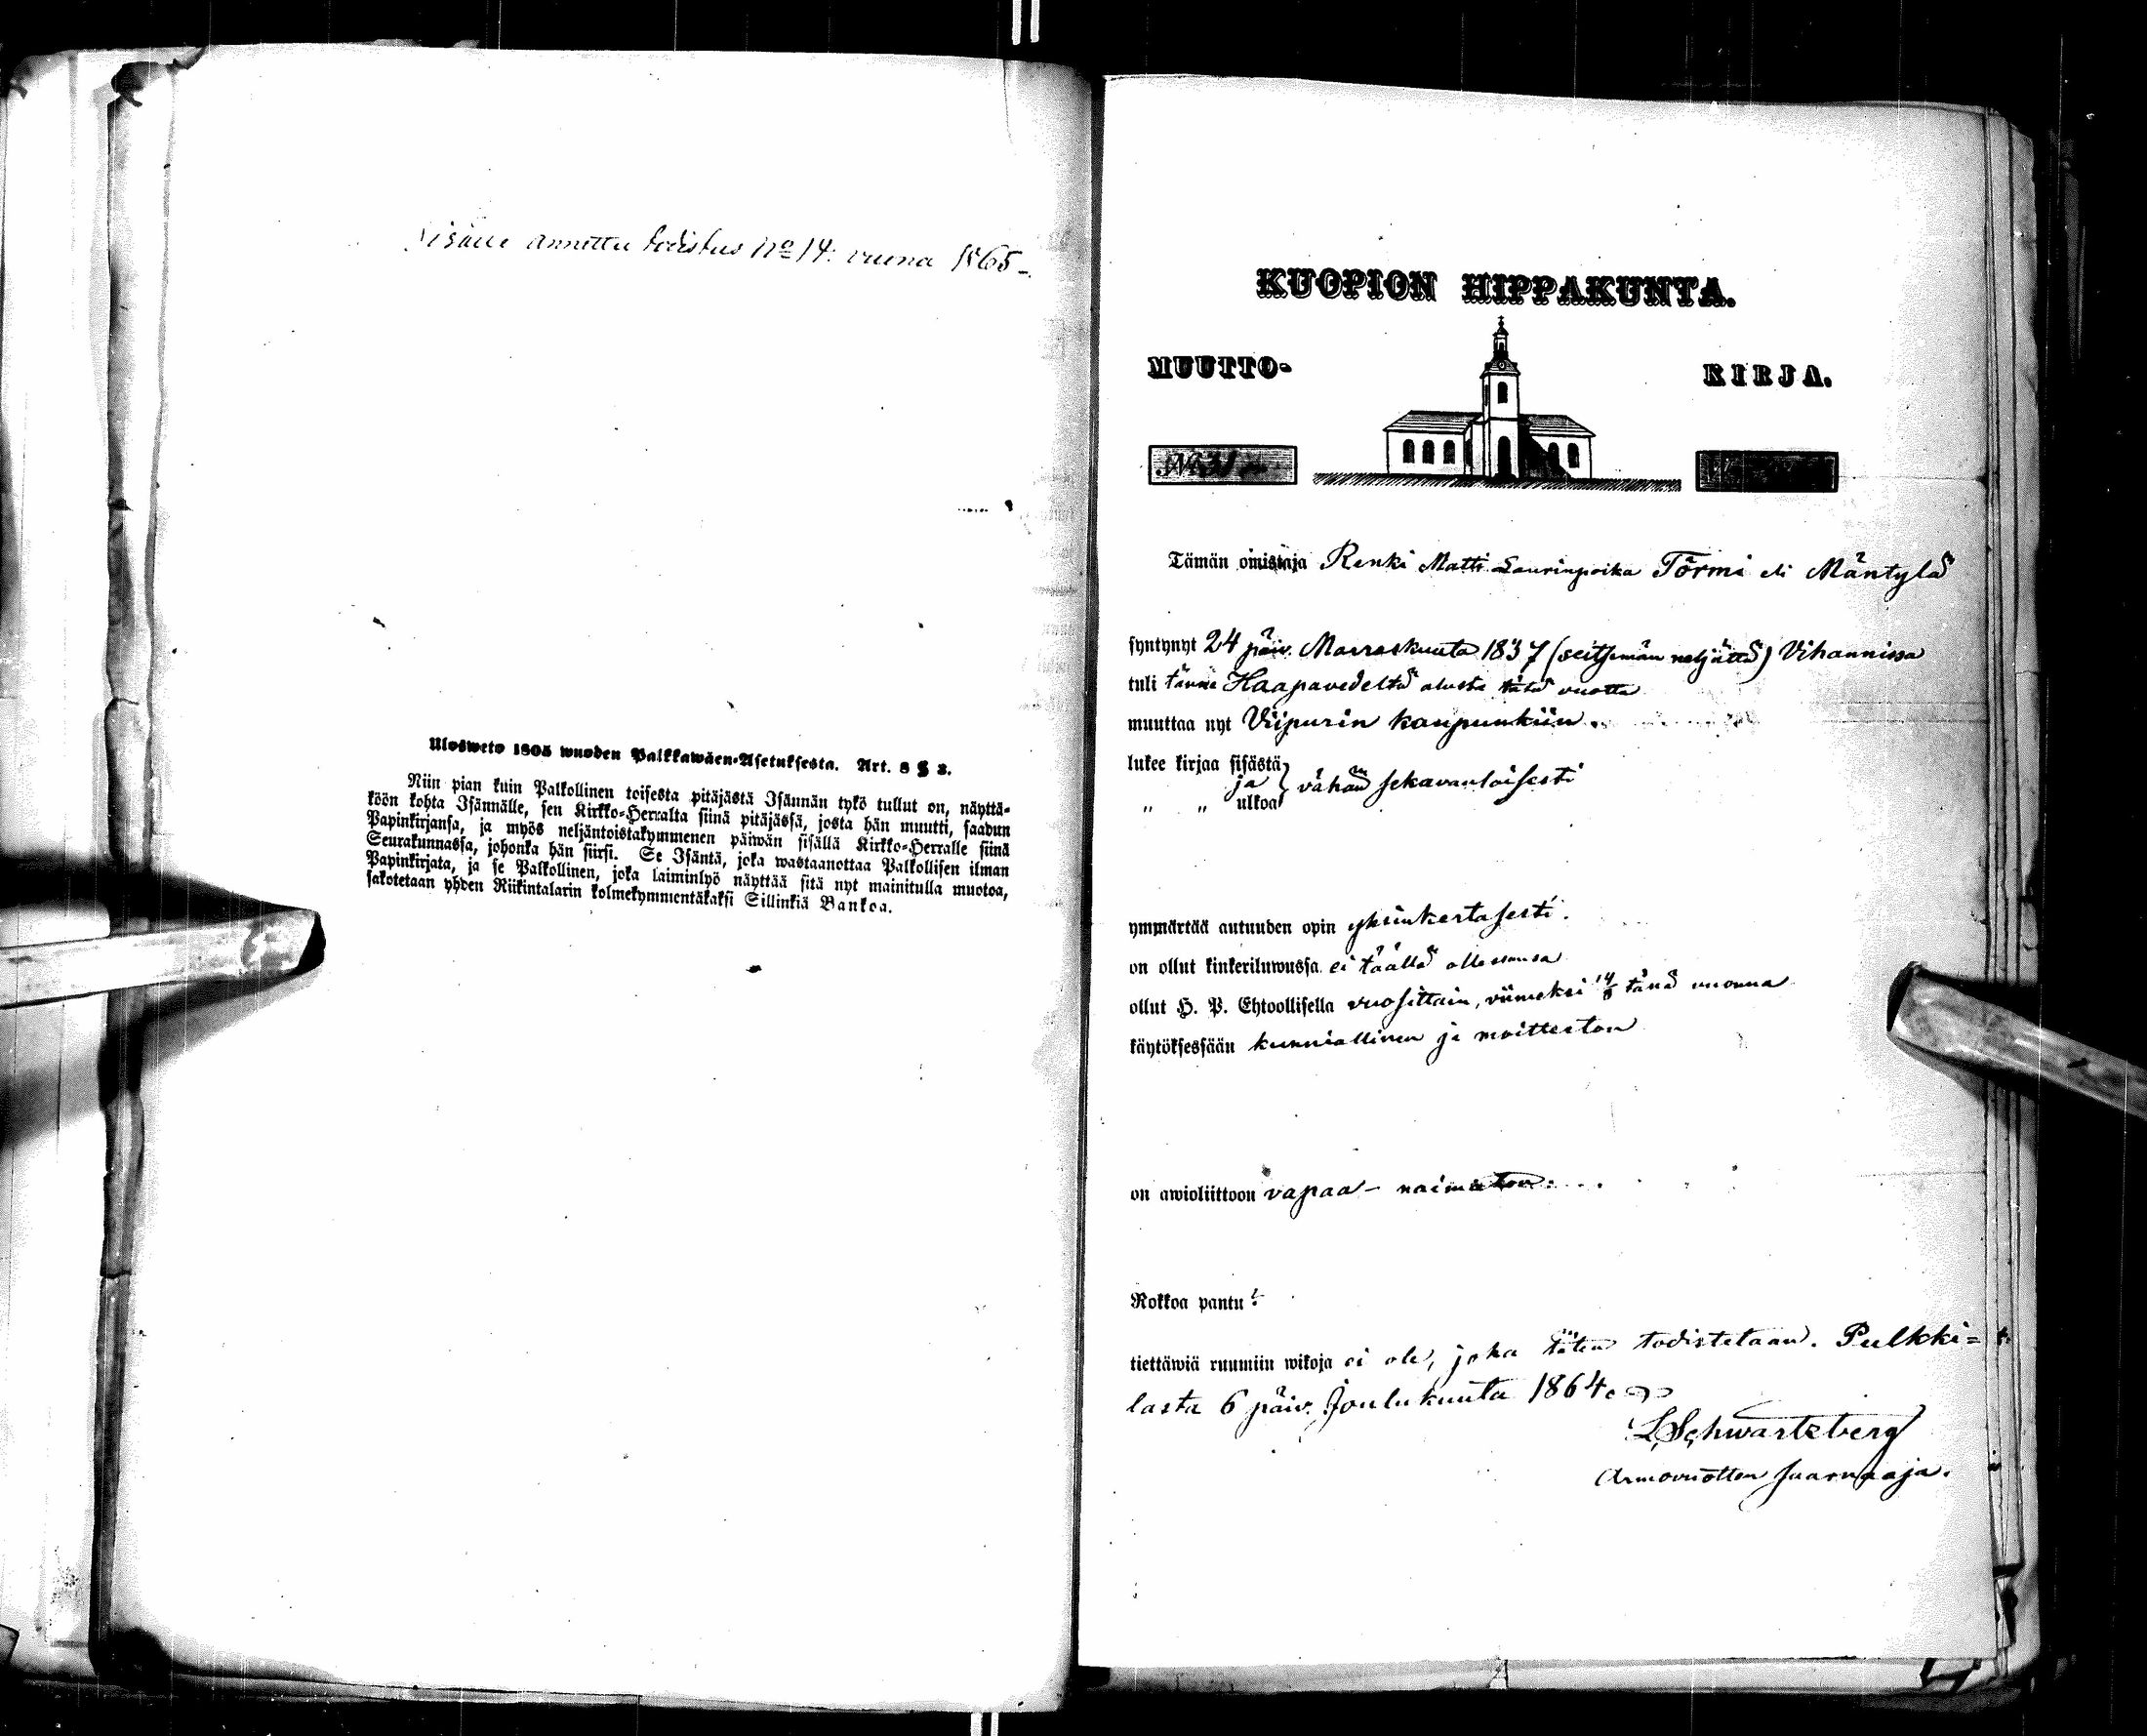 Sisälle annettu todistus No 14: vuena 1865 -
Ulosweto 1805 wuoden Palkkawäen-Asetuksesta. Art. 8 § 3.
Niin pian kuin Palkollinen toisesta pitäjästä Isännän tykö tullut on, näyttä-
köön kohta Isännälle, sen Kirkko-Herralta siinä pitäjässä, josta hän muutti, saadun
Papinkirjansa, ja myös neljäntoistakymmenen päiwän sisällä Kirkko-Herralle siinä
Seurakunnassa, johonka hän siirsi. Se Isäntä, joka wastaanottaa Palkollisen ilman
Papinkirjata, ja se Palkollinen, joka laiminlyö näyttää sitä nyt mainitulla muotoa,
sakotetaan yhden Riikintalarin kolmekymmentäkaksi Sillinkiä Bankoa.
KUOPION HIPPAKUNTA.
MUUTTO- KIRJA.
No 31
Tämän omistaja Renki Matti Laurinpoika Törmi eli Mäntylä
syntynyt 24 päiv. Marraskuuta 1837 (seitsemän neljättä) Vihannissa
tuli tänne Haapavedeltä alusta tätä vuotta
muuttaa nyt Viipurin kaupunkiin.
lukee kirjaa sisästä
ja } vähän sekavanlaisesti
„ „ ulkoa
ymmärtää autuuden opin yksinkertasesti.
on ollut kinkeriluwussa ei täällä ollessansa
ollut H. P. Ehtoollisella vuosittain, viimeksi 14/8 tänä vuonna
käytöksessään kunniallinen ja moitteeton
on awioliittoon vapaa - naimaton.
Rokkoa pantu?
tiettäwiä ruumiin wikoja ei ole, joka täten todistetaan. Pulkki=
lasta 6 päiv. Joulukuuta 1864.
L Schwartzberg
Armovuotten saarnaaja.